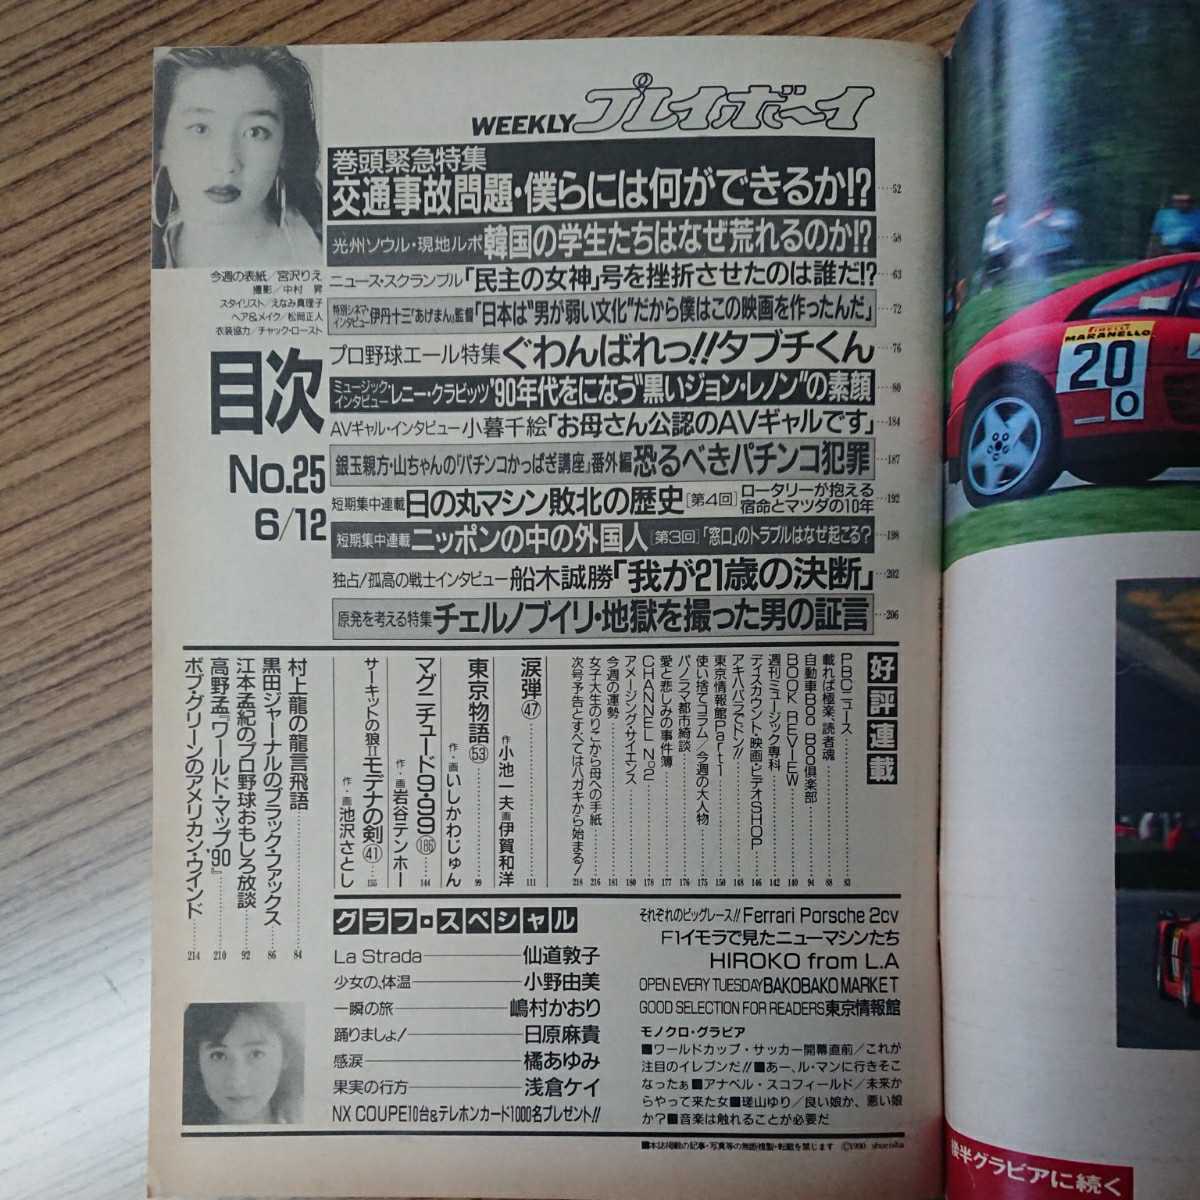 WEEKLYプレイボーイ
巻頭緊急特集
交通事故問題・僕らには何ができるか!? ……52
光州ソウル・現地ルポ 韓国の学生たちはなぜ荒れるのか!? ……58
ニュース・スクランブル「民主の女神」号を挫折させたのは誰だ!? ……63
特別シネマインタビュー 伊丹十三『あげまん』監督「日本は“男が弱い文化”だから僕はこの映画を作ったんだ」 ……72
プロ野球エール特集 ぐわんばれっ!!タブチくん ……76
ミュージック・インタビュー レニー・クラビッツ '90年代をになう“黒いジョン・レノン”の素顔 ……80
AVギャル・インタビュー 小暮千絵「お母さん公認のAVギャルです」 ……184
銀玉親方・山ちゃんの「パチンコかっぱぎ講座」番外編 恐るべきパチンコ犯罪 ……187
短期集中連載 日の丸マシン敗北の歴史[第4回]ロータリーが抱える宿命とマツダの10年 ……192
短期集中連載 ニッポンの中の外国人[第3回]「窓口」のトラブルはなぜ起こる? ……198
独占!孤高の戦士インタビュー 船木誠勝「我が21歳の決断」 ……202
原発を考える特集 チェルノブイリ・地獄を撮った男の証言 ……206
今週の表紙/宮沢りえ
撮影/中村 昇
スタイリスト/えなみ眞理子
ヘア&メイク/松岡正人
衣装協力/チャック・ロースト
目次
No.25
6/12
好評連載
PBCニュース 83
載れば極楽、読者魂 88
自動車BOO BOO倶楽部 94
BOOK REVIEW 140
週刊ミュージック専科 142
ディスカウント・映画・ビデオSHOP 146
アキバハラでドン!! 148
東京情報館Part1 150
使い捨てコラム/今週の大人物 175
パノラマ都市綺談 176
愛と悲しみの事件簿 177
CHANNEL No2 178
アメージング・サイエンス 180
今週の運勢 181
女子大生のりこから母への手紙 216
次号予告とすべてはハガキから始まる! 218
涙弾㊼ 作・小池一夫 画・伊賀和洋 111
東京物語(53) 作・画 いしかわじゅん 99
マグニチュード9・99(186) 作・画・岩谷テンホー 144
サーキットの狼IIモデナの剣㊶ 作・画・池沢さとし 155
村上龍の龍言飛語 84
黒田ジャーナルのブラック・ファックス 86
江本孟紀のプロ野球おもしろ放談 92
高野孟『ワールド・マップ'90』 210
ボブ・グリーンのアメリカン・ウインド 214
グラフ・スペシャル
La Strada 仙道敦子
少女の、体温 小野由美
一瞬の旅 嶋村かおり
踊りましょ! 日原麻貴
感涙 橘あゆみ
果実の行方 浅倉ケイ
NX COUPE10台&テレホンカード1000名プレゼント!!
それぞれのビッグレース!! Ferrari Porsche 2cv
F1イモラで見たニューマシンたち
HIROKO from L.A
OPEN EVERY TUESDAY BAKOBAKO MARKET
GOOD SELECTION FOR READERS 東京情報館
モノクロ・グラビア
■ワールドカップ・サッカー開幕直前/これが
注目のイレブンだ!!■あー、ル・マンに行きそこ
なったぁ■アナベル・スコフィールド/未来か
らやって来た女■瑳山ゆり/良い娘か、悪い娘
か?■音楽は触れることが必要だ
■本誌掲載の記事・写真等の無断複製・転載を禁じます ©1990 shueisha
PIRELLI
MARANELLO
20
0
後半グラビアに続く